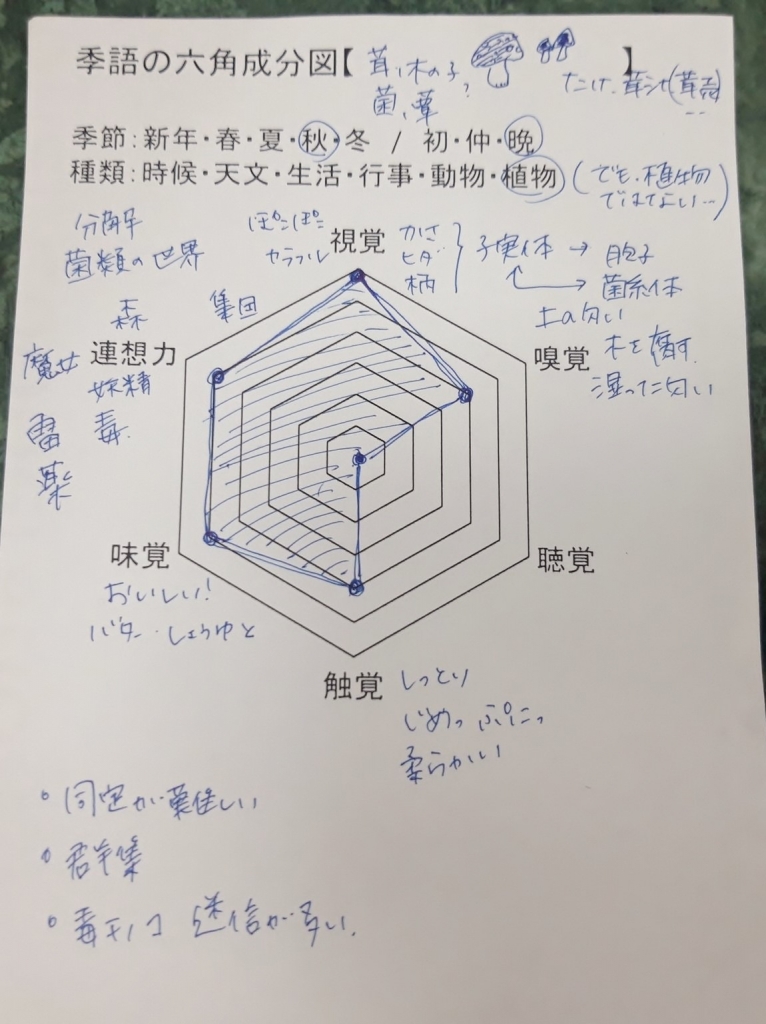 季語の六角成分図【茸、木の子、
菌、蕈】
たけ、茸汁(茸
季節：新年・春・夏・秋・冬 / 初・仲・晩
種類：時候・天文・生活・行事・動物・植物 (でも、植物
ではない…)
分解
菌類の世界
森
集団
魔女
妖精
雷
毒
薬
連想力
ぽこぽこ
カラフル
視覚
かさ
ヒダ
柄
子実体 → 胞子
菌糸体
土の匂い
嗅覚
木を腐す
湿った匂い
味覚
おいしい!
バター・しょうゆと
聴覚
触覚
しっとり
じめっ ぷにっ
柔らかい
• 同定が難しい
• 群集
• 毒キノコ 迷信が多い.